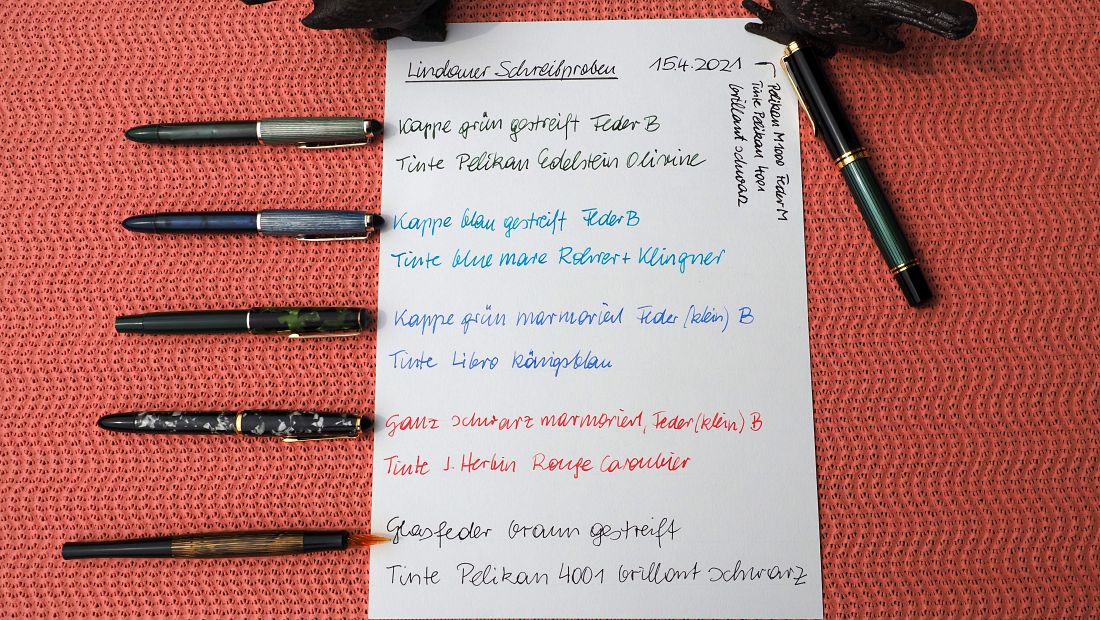 Lindauer Schreibproben 15.4.2021
Pelikan M1000 Feder M
Tinte Pelikan 4001
brillant schwarz
Kappe grün gestreift Feder B
Tinte Pelikan Edelstein Olivine
Kappe blau gestreift Feder B
Tinte blue mare Rohrer + Klingner
Kappe grün marmoriert Feder (klein) B
Tinte Libro königsblau
Ganz schwarz marmoriert, Feder (klein) B
Tinte J. Herbin Rouge Caroubier
Glasfeder braun gestreift
Tinte Pelikan 4001 brillant schwarz